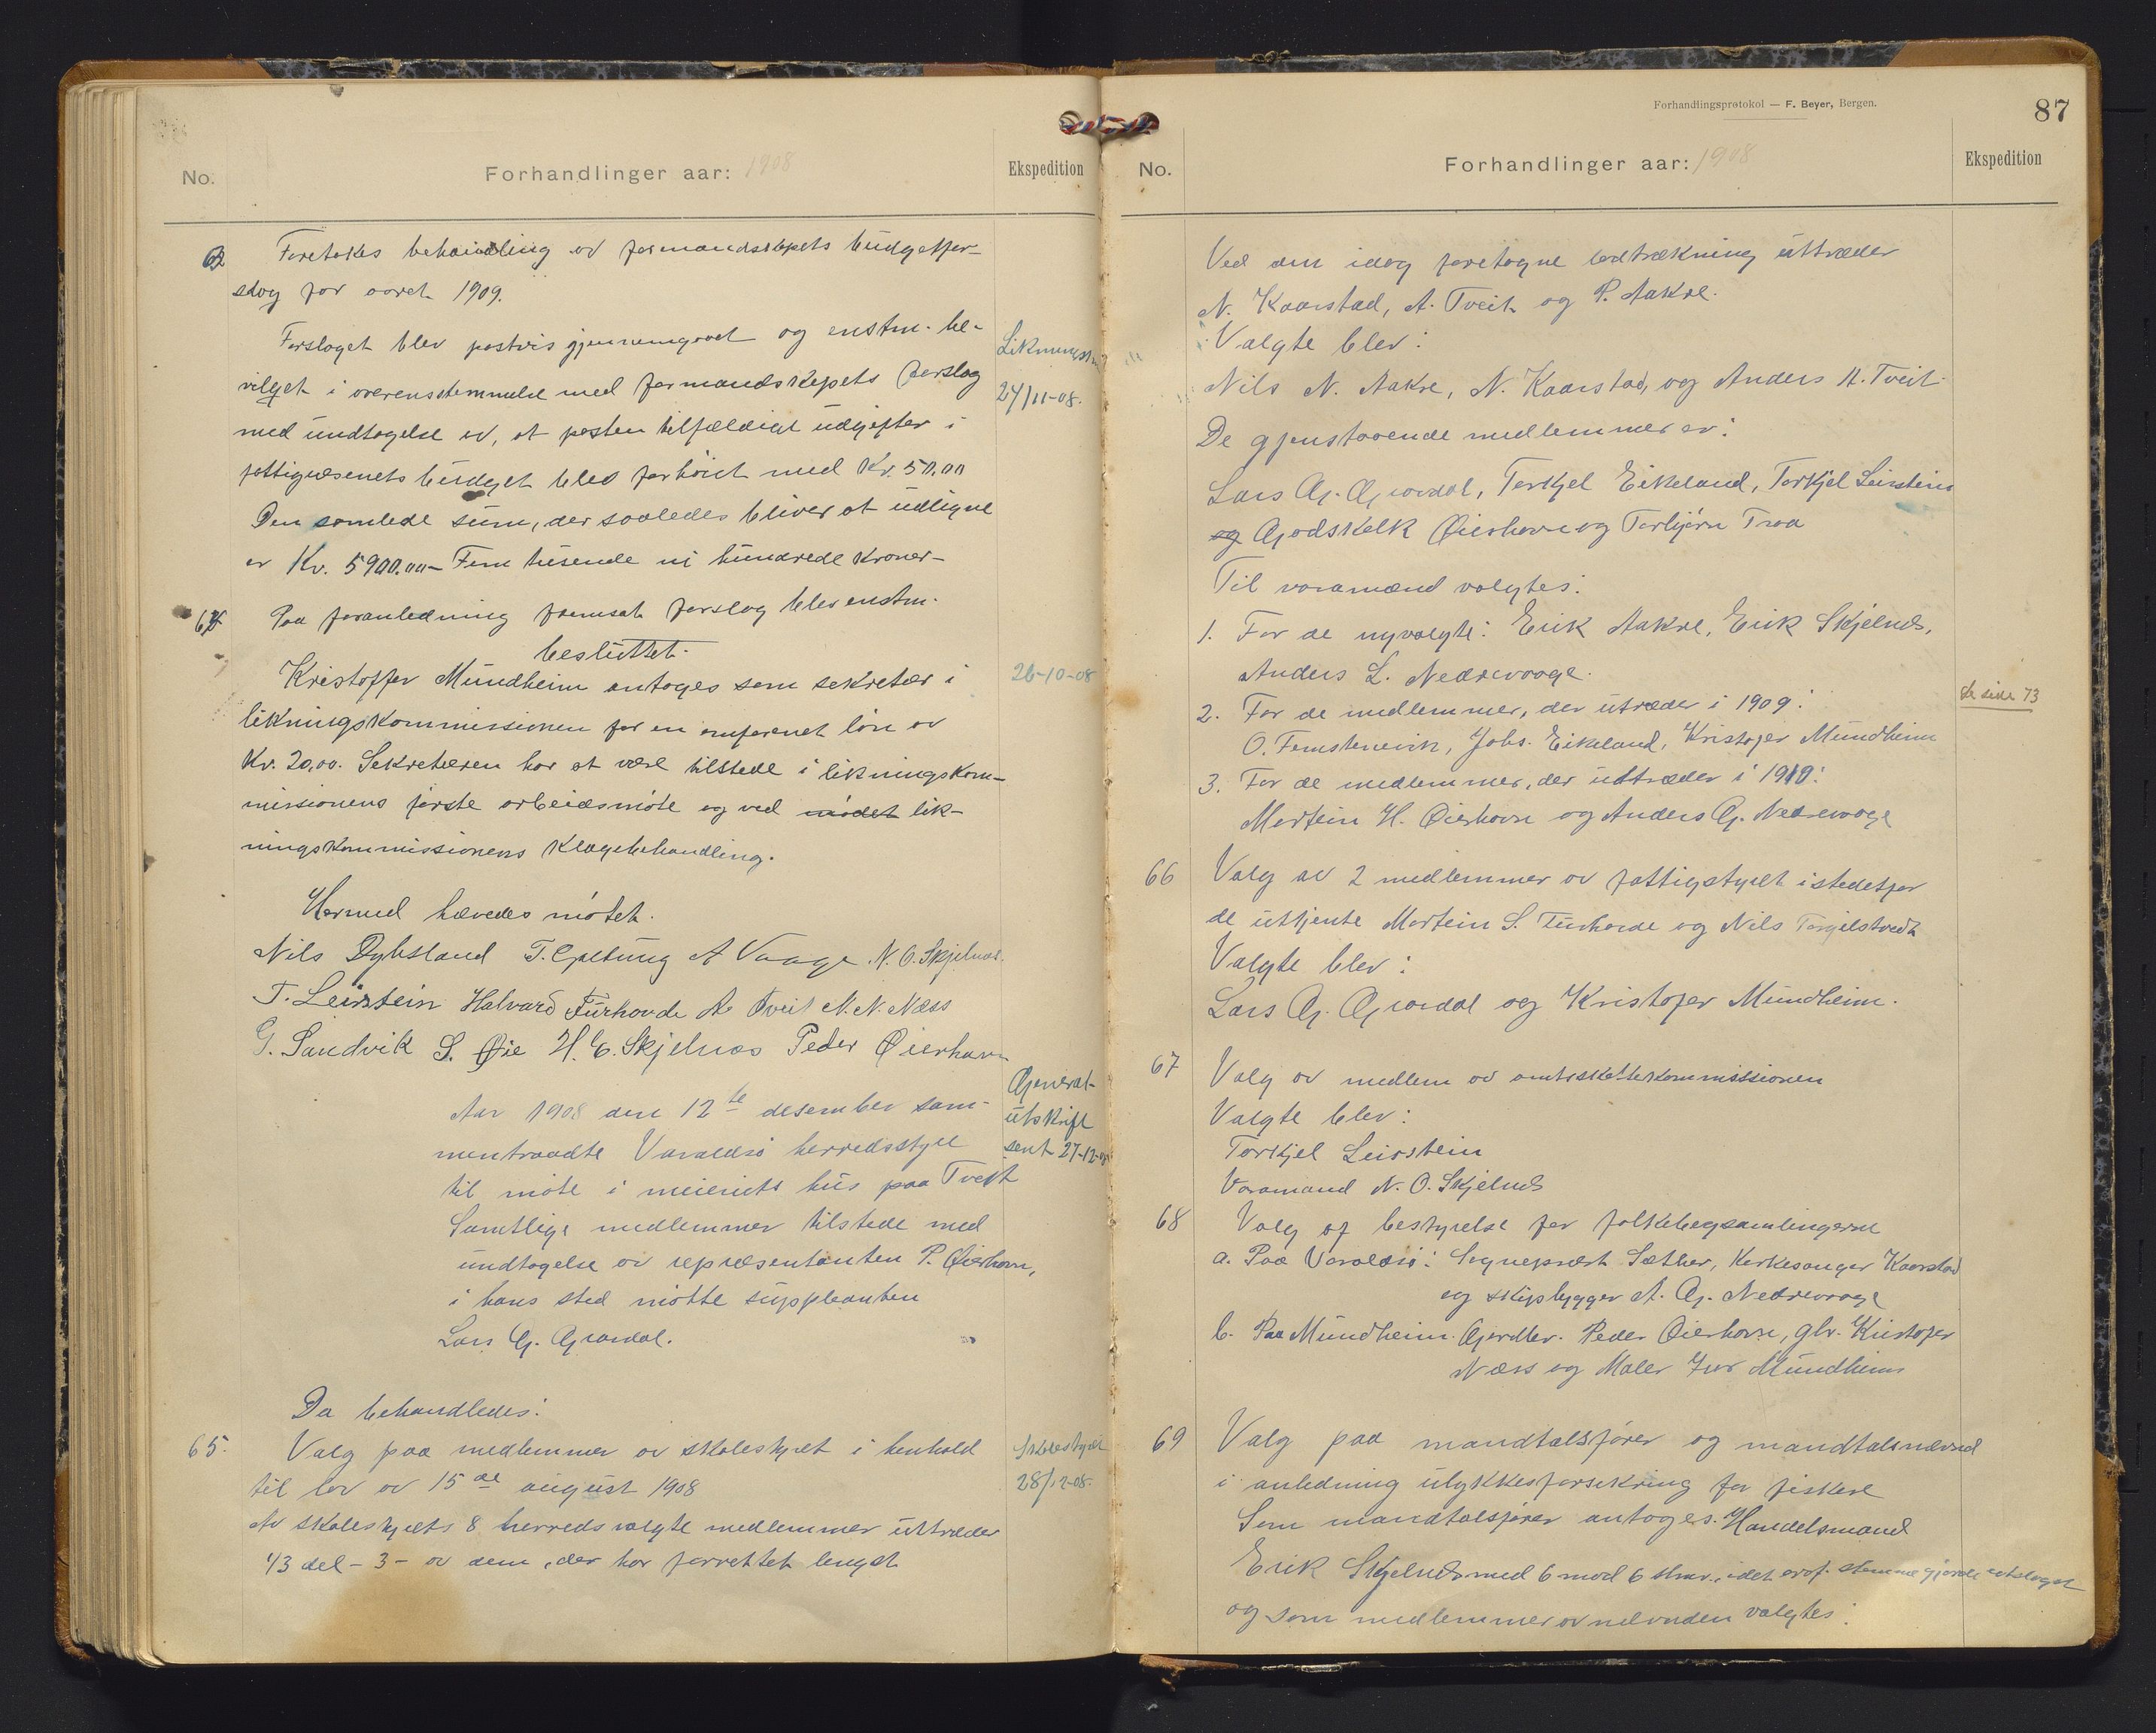 No.
Forhandlinger aar: 1908
Ekspedition
Foretokes behandling av formandskapets budgetfor-
slag for aaret 1909.
Forslaget blev postvis gjennemgaat og enstm. be-
vilget i overensstemmelse med formandskapets forslag
med undtagelse av, at posten tilfældige udgifter i
fattigvæsenets budget blev forhöiet med Kr. 50.00
Den samlede sum, der saaledes bliver at udligne
er Kr. 5900.00 - Fem tusende ni hundrede kroner -
Likningskm
24/11-08.
Paa foranledning fremsat forslag blev enstm.
besluttet.
Kristoffer Mundheim antoges som sekretær i
likningskommissionen for en omforenet lön av
Kr. 20,00. Sekretæren har at være tilstede i likningskom-
missionens förste arbeidsmöte og ved mödet lik-
ningskommissionens klagebehandling.
26-10-08
Hermed hævedes mötet.
Nils Dybsland T. Gjetung A Vaage N. O. Skjelnes.
T. Leirstein Halvard Furhovde A Tveit N. N. Næss
G. Sandvik S. Øie H. E. Skjelnæs Peder Øierhavn
Aar 1908 den 12te desember sam-
mentraadte Varaldsö herredsstyre
til möte i meieriets hus paa Tveit
Samtlige medlemmer tilstede med
undtagelse av repræsentanten P. Øierhavn,
i hans sted mötte suppleanten
Lars G. Gravdal.
General-
utskrift
sent 27-12-08
Da behandledes:
65. Valg paa medlemmer av skolestyret i henhold
til lov av 15de august 1908
Av skolestyrets 8 herredsvalgte medlemmer uttræder
1/3 del - 3 - av dem, der har forrettet lengst
Skolestyret
28/12-08.
Forhandlingsprotokol — F. Beyer, Bergen.
87
No.
Forhandlinger aar: 1908
Ekspedition
Ved den idag foretagne lodtrækning uttræder
N. Kaarstad, A. Tveit og P. Aakre.
Valgte blev:
Nils N. Aakre, N. Kaarstad, og Anders H. Tveit
De gjenstaaende medlemmer er:
Lars G. Gravdal, Torkjel Eikeland, Torkjel Leirstein
og Godskalk Øierhavn og Torbjörn Traa
Til varamænd valgtes:
1. For de nyvalgte: Erik Aakre, Erik Skjelnes,
Anders L. Nedrevaage.
2. For de medlemmer, der utræder i 1909:
O. Femstenevik, Johs. Eikeland, Kristofer Mundheim
Se side 73
3. For de medlemmer, der udtræder i 1910:
Mortein H. Øierhavn og Anders G. Nedrevaage
66 Valg av 2 medlemmer av fattigstyret istedetfor
de uttjente Mortein S. Furhovde og Nils Torgilstvedt
Valgte blev:
Lars G. Gravdal og Kristofer Mundheim.
67 Valg av medlem av amtsskattekommissionen
Valgte blev:
Torkjel Leirstein
Varamand N. O. Skjelnes
68 Valg af bestyrelse for folkebogsamlingerne
a. Paa Varaldsö: Sogneprest Sæther, Kirkesanger Kaarstad
og skipsbygger A. G. Nedrevaage
b. Paa Mundheim. Gjerdbr. Peder Øierhavn, gbr. Kristofer
Næss og Maler Iver Mundheim
69 Valg paa mandtalsförer og mandtalsnævnd
i anledning ulykkesforsikring for fiskere
Som mandtalsförer antoges. Handelsmand
Erik Skjelnes med 6 mod 6 stmr., idet orof. stemme gjorde utslaget
og som medlemmer av nævnden valgtes: